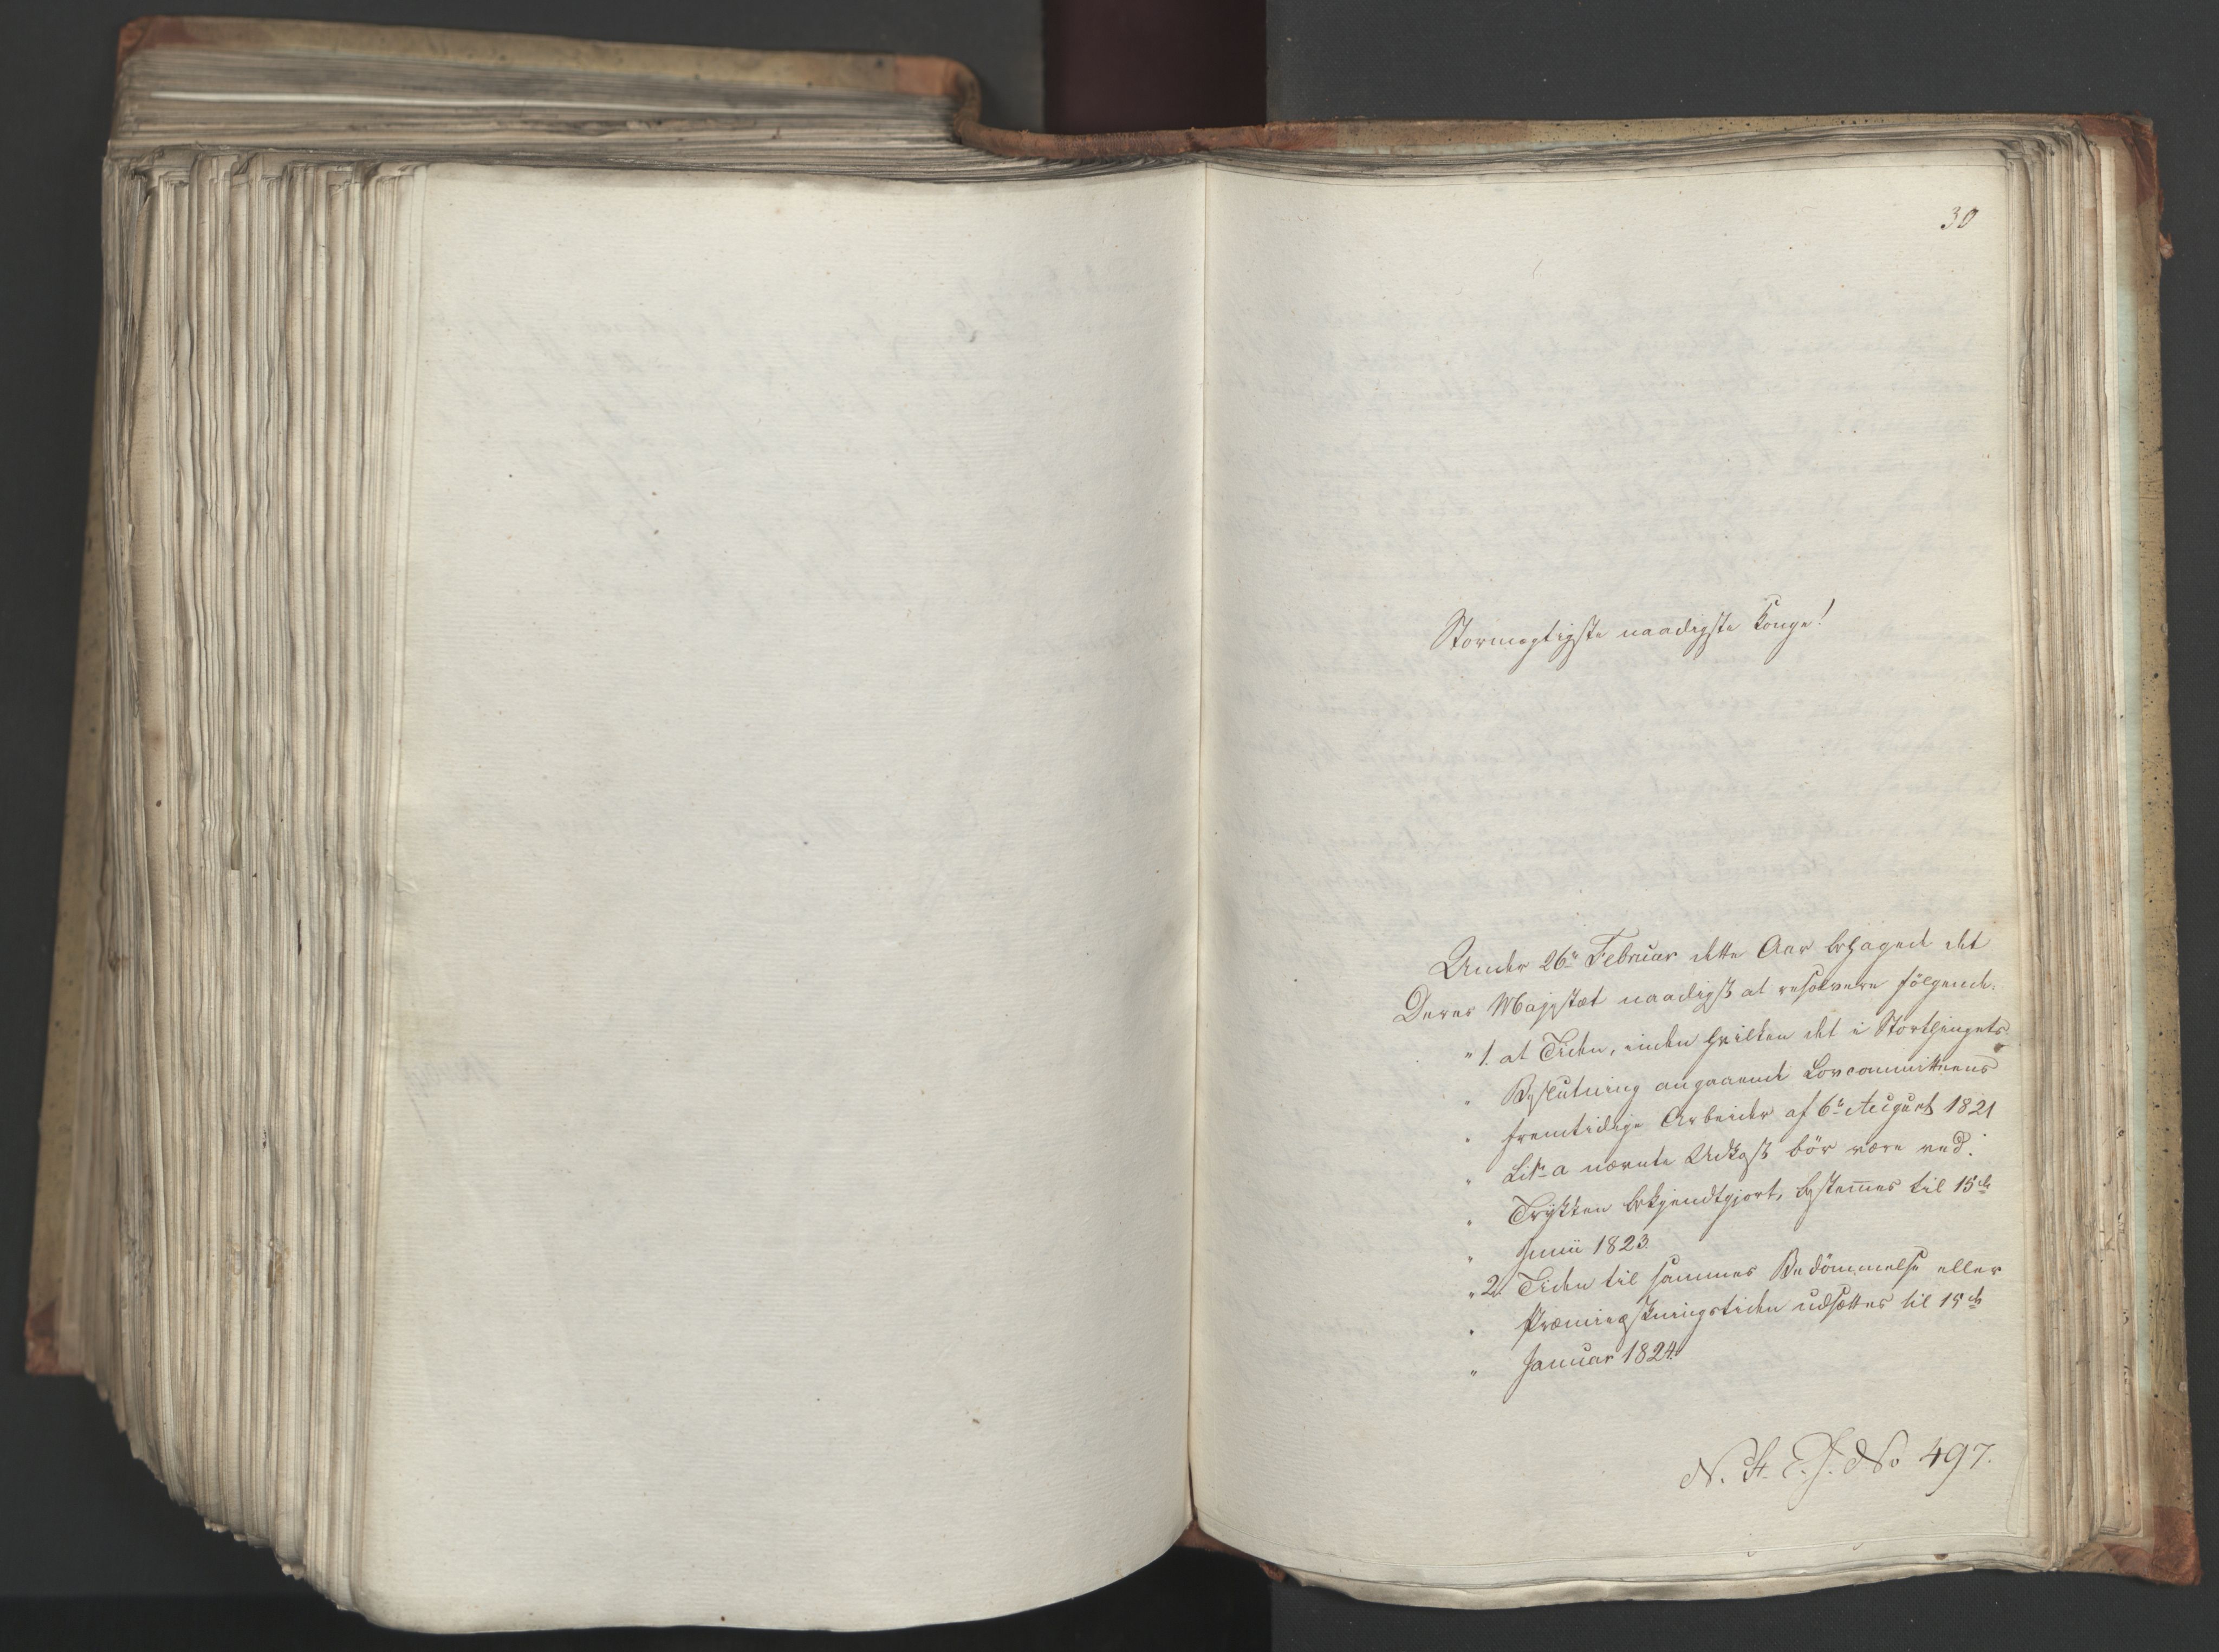 30
Stormægtigste naadigste Konge!
Under 26de Februar dette Aar behagede det
Deres Majestæt naadigst at resolvere følgende:
" 1. at Tiden, inden hvilken det i Storthingets
" Beslutning angaaende Lovcommitteens
" fremtidige Arbeider af 6te August 1821
" Litr a nævnte Udkast bör være ved
" Trykken bekjendtgjort, bestemmes til 15de
" Junii 1823.
" 2. Tiden til sammes Bedömmelse eller
" Præmieæskningstiden udsættes til 15de
" Januar 1824.
N. St. E. J. No 497.